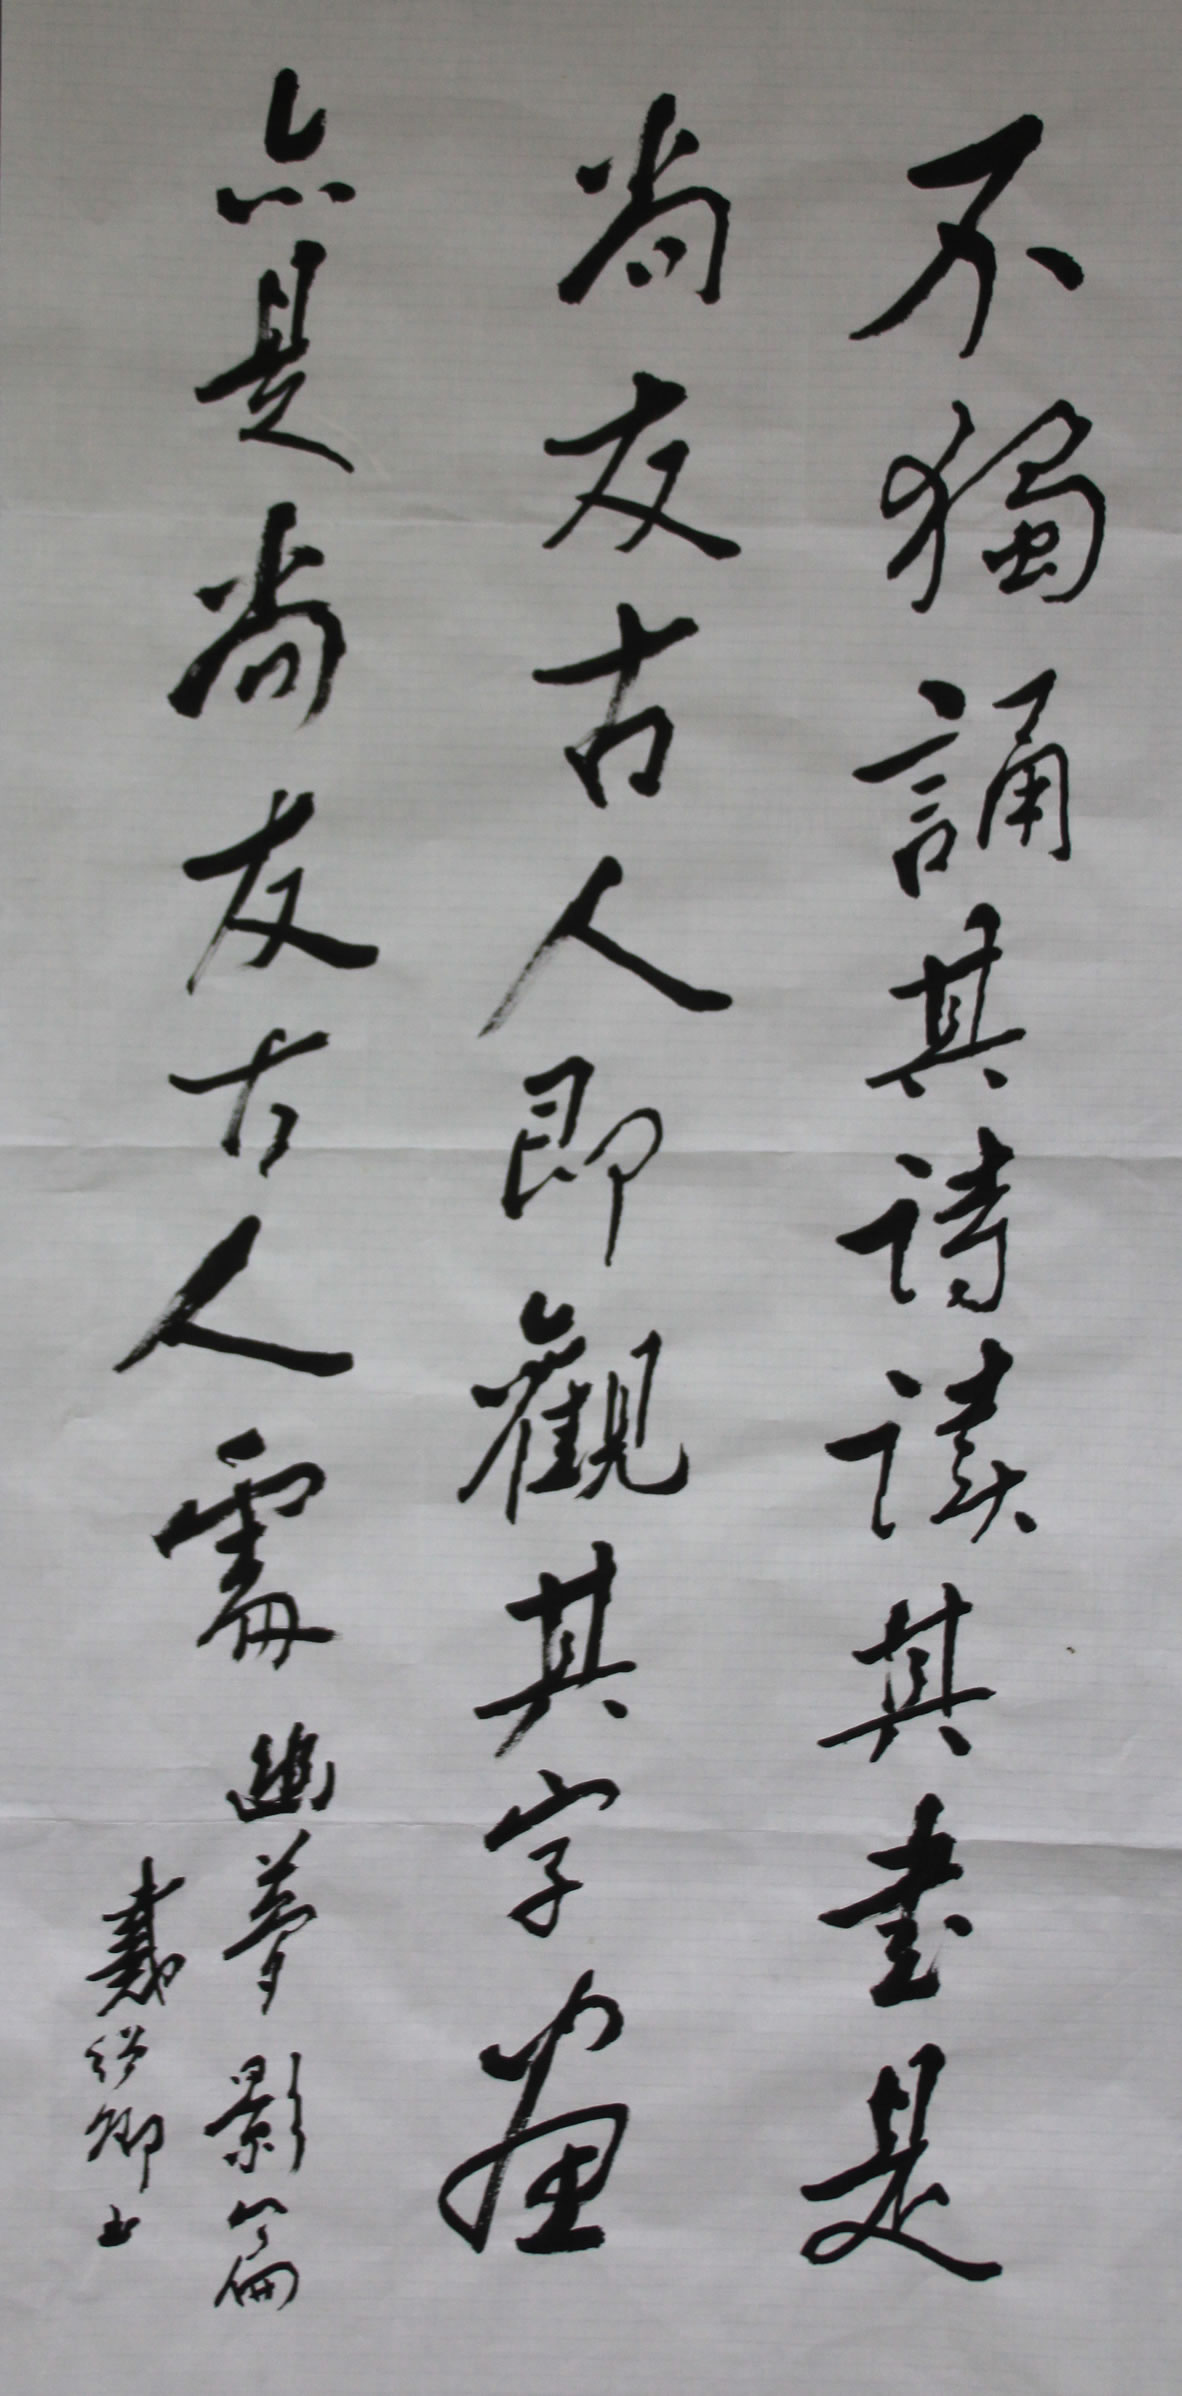 不獨誦其詩讀其書是
尚友古人即觀其字畫
亦是尚友古人處
幽夢影篇
戴紹卿书